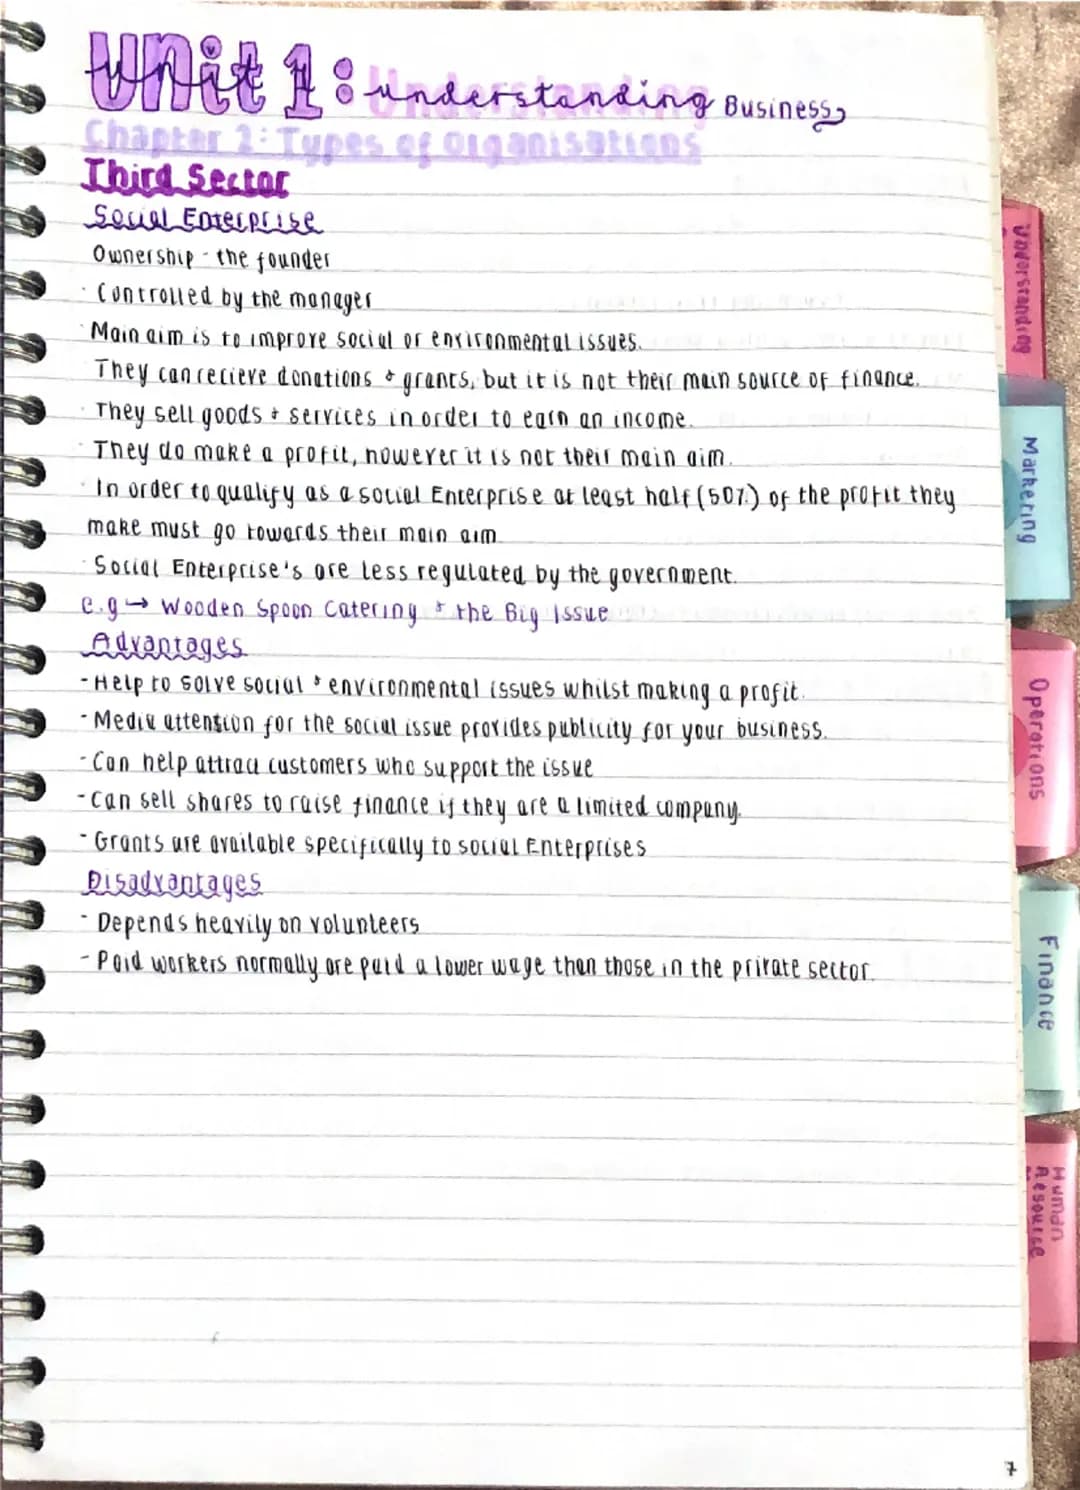 Unit 1: Understanding Business
Chapter 2: Types of Organisations
Third Sector
Social Enterprise
Ownership - the founder
· Controlled by the manager
· Main aim is to improve social or environmental issues.
They can recieve donations & grants, but it is not their main source of finance.
· They sell goods & services in order to earn an income.
· They do make a profit, however it is not their main aim.
· In order to qualify as a social Enterprise at least half (50%) of the profit they
make must go towards their main aim.
· Social Enterprise's are less regulated by the government.
e.g → Wooden Spoon Catering & the Big Issue
Advantages
- Help to solve social & environmental issues whilst making a profit.
- Media attention for the social issue provides publicity for your business.
- Can help attract customers who support the issue
- Can sell shares to raise finance if they are a limited company.
- Grants are available specifically to social Enterprises
Disadvantages
- Depends heavily on volunteers
- Paid workers normally are paid a lower wage then those in the private sector.
7
Understanding
Marketing
Operations
Finance
Human
Resource